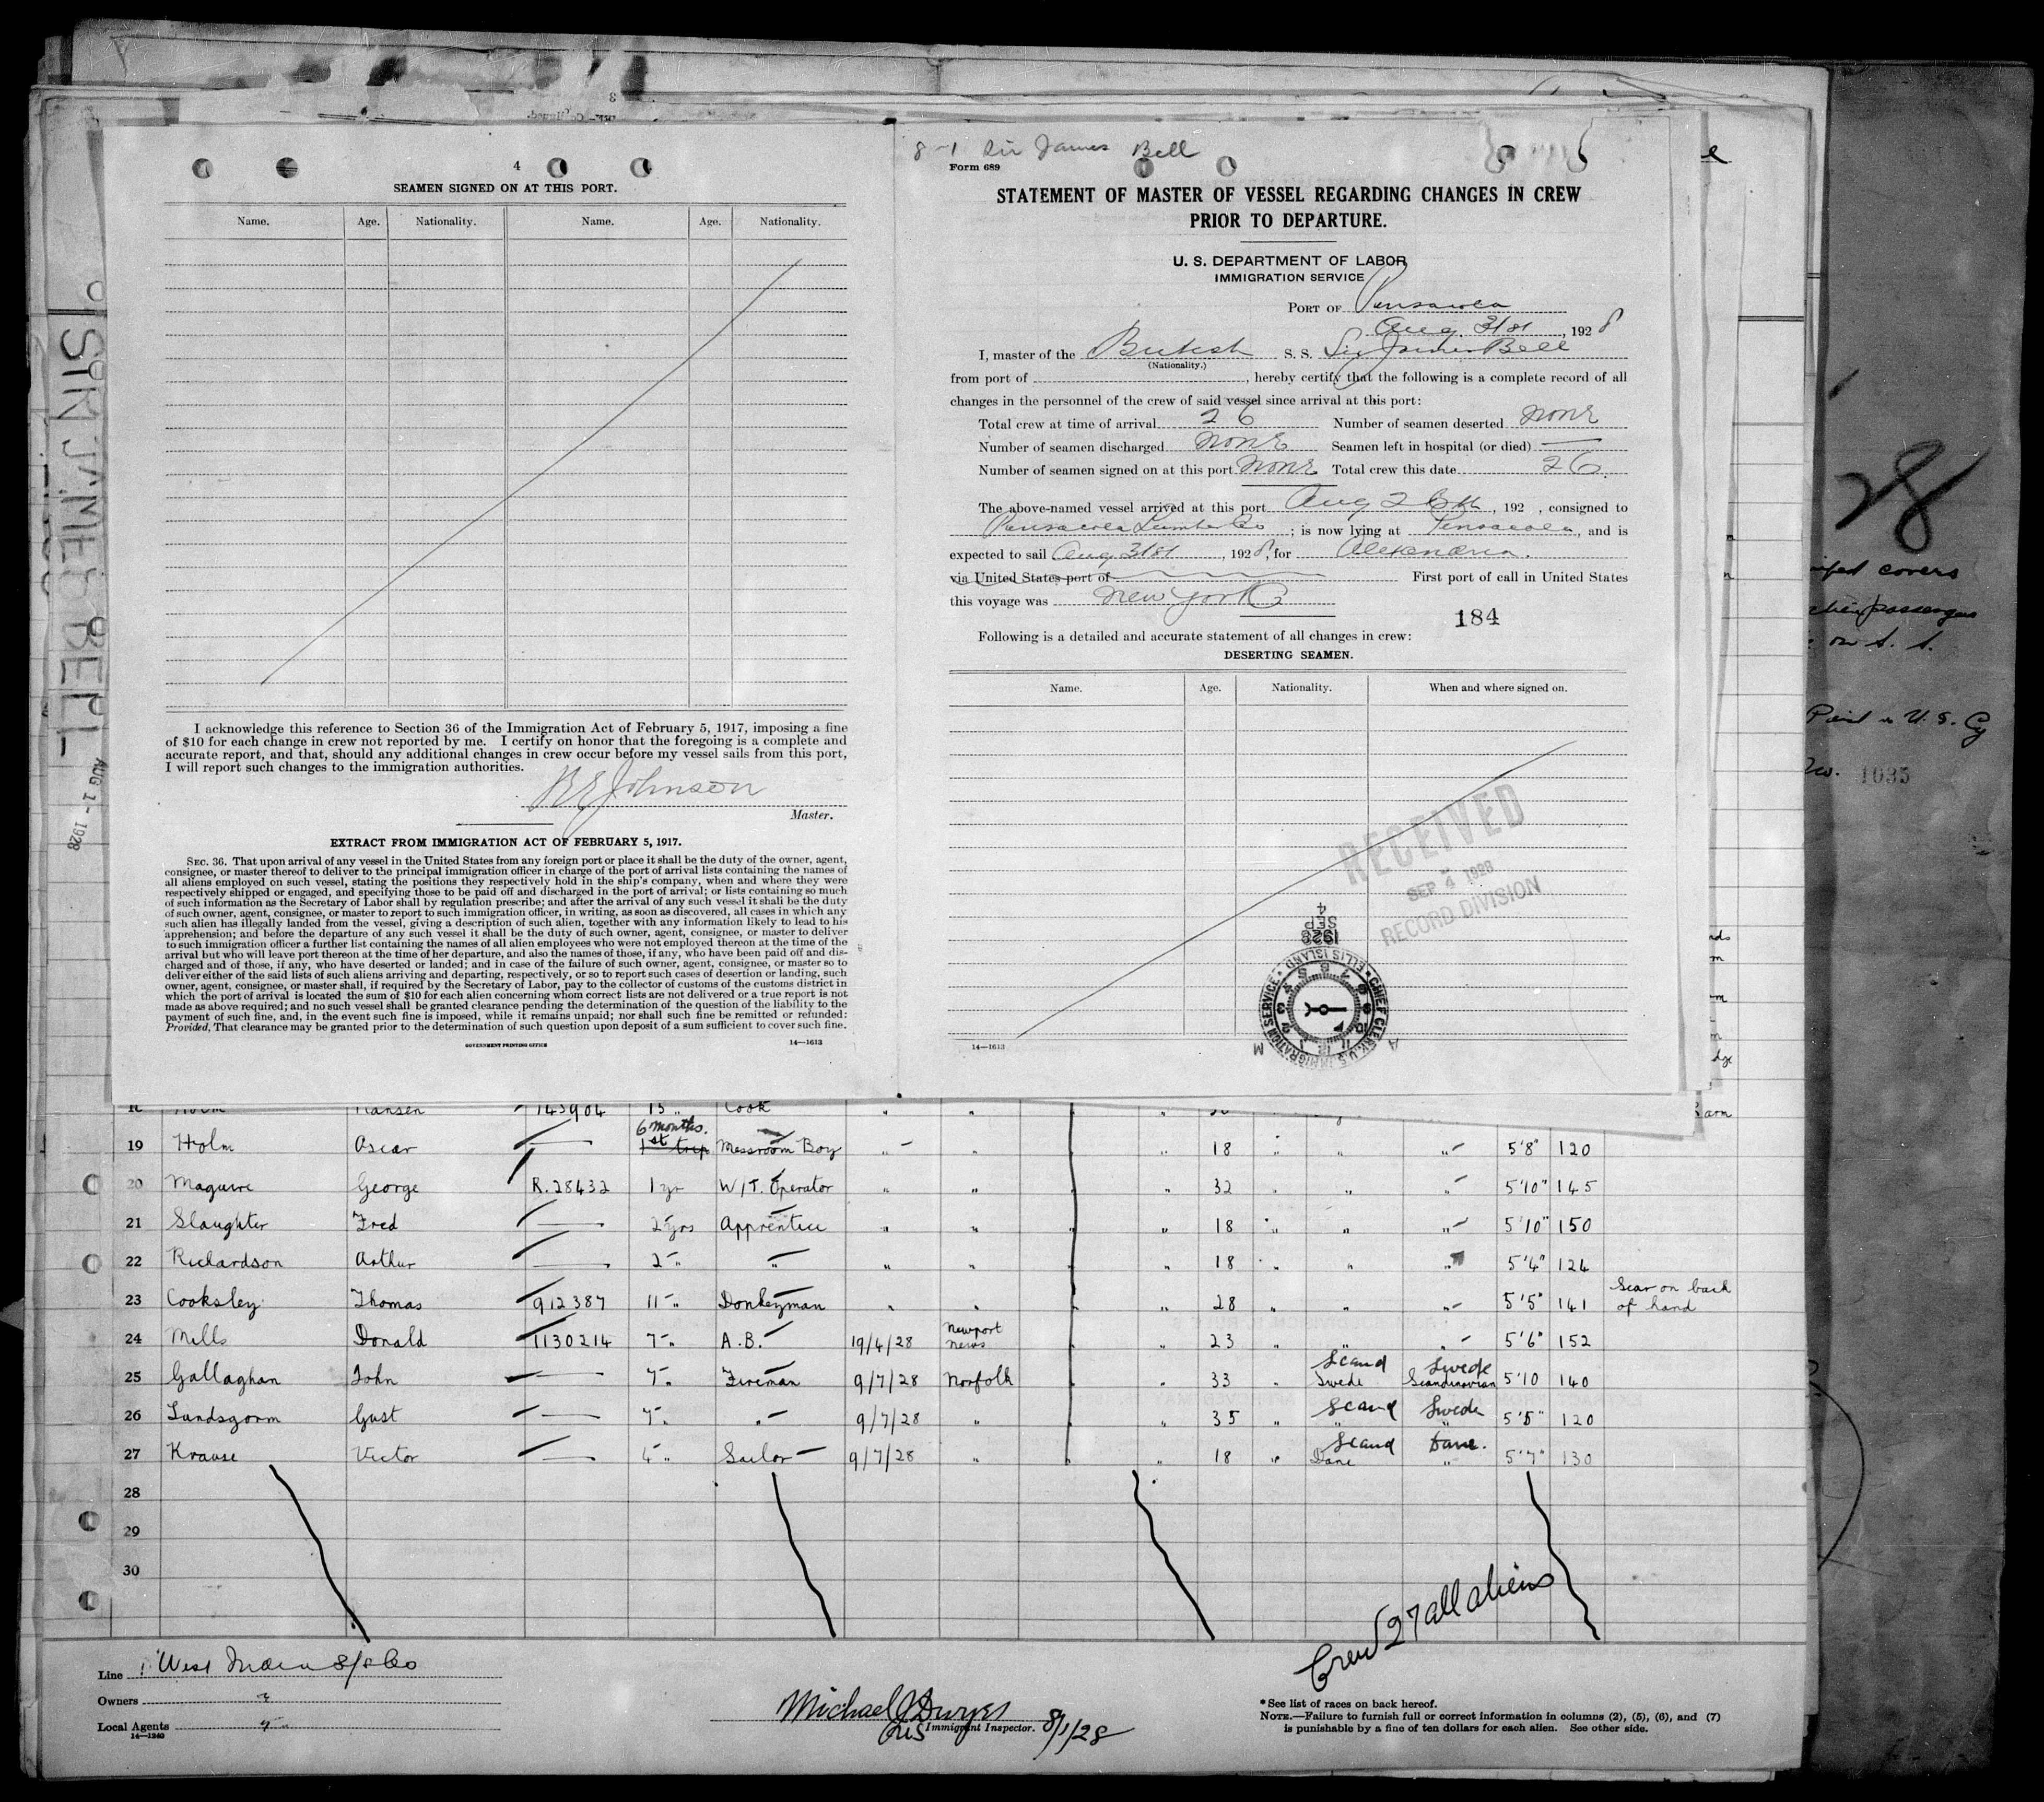 4
SEAMEN SIGNED ON AT THIS PORT.
Name. Age. Nationality. Name. Age. Nationality.
I acknowledge this reference to Section 36 of the Immigration Act of February 5, 1917, imposing a fine
of $10 for each change in crew not reported by me. I certify on honor that the foregoing is a complete and
accurate report, and that, should any additional changes in crew occur before my vessel sails from this port,
I will report such changes to the immigration authorities.
Johnson
Master.
EXTRACT FROM IMMIGRATION ACT OF FEBRUARY 5, 1917.
SEC. 36. That upon arrival of any vessel in the United States from any foreign port or place it shall be the duty of the owner, agent,
consignee, or master thereof to deliver to the principal immigration officer in charge of the port of arrival lists containing the names of
all aliens employed on such vessel, stating the positions they respectively hold in the ship's company, when and where they were
respectively shipped or engaged, and specifying those to be paid off and discharged in the port of arrival; or lists containing so much
of such information as the Secretary of Labor shall by regulation prescribe; and after the arrival of any such vessel it shall be the duty
of such owner, agent, consignee, or master to report to such immigration officer, in writing, as soon as discovered, all cases in which any
such alien has illegally landed from the vessel, giving a description of such alien, together with any information likely to lead to his
apprehension; and before the departure of any such vessel it shall be the duty of such owner, agent, consignee, or master to deliver
to such immigration officer a further list containing the names of all alien employees who were not employed thereon at the time of the
arrival but who will leave port thereon at the time of her departure, and also the names of those, if any, who have been paid off and dis-
charged and of those, if any, who have deserted or landed; and in case of the failure of such owner, agent, consignee, or master so to
deliver either of the said lists of such aliens arriving and departing, respectively, or so to report such cases of desertion or landing, such
owner, agent, consignee, or master shall, if required by the Secretary of Labor, pay to the collector of customs of the customs district in
which the port of arrival is located the sum of $10 for each alien concerning whom correct lists are not delivered or a true report is not
made as above required; and no such vessel shall be granted clearance pending the determination of the question of the liability to the
payment of such fine, and, in the event such fine is imposed, while it remains unpaid; nor shall such fine be remitted or refunded:
Provided, That clearance may be granted prior to the determination of such question upon deposit of a sum sufficient to cover such fine.
GOVERNMENT PRINTING OFFICE 14—1613
8-1 Sir James Bell
Form 689
STATEMENT OF MASTER OF VESSEL REGARDING CHANGES IN CREW
PRIOR TO DEPARTURE.
U. S. DEPARTMENT OF LABOR
IMMIGRATION SERVICE
PORT OF Pensacola
Aug 31st, 1928
I, master of the British S. S. Sir James Bell
(Nationality.)
from port of , hereby certify that the following is a complete record of all
changes in the personnel of the crew of said vessel since arrival at this port:
Total crew at time of arrival 26 Number of seamen deserted None
Number of seamen discharged None Seamen left in hospital (or died) —
Number of seamen signed on at this port None Total crew this date 26
The above-named vessel arrived at this port Aug 26th, 192 , consigned to
Pensacola Lumber Co ; is now lying at Pensacola, and is
expected to sail Aug 31st, 1928, for Alexandria.
via United States port of First port of call in United States
this voyage was New York
184
Following is a detailed and accurate statement of all changes in crew:
DESERTING SEAMEN.
Name. Age. Nationality. When and where signed on.
RECEIVED
SEP 4 1928
RECORD DIVISION
SEP 4
1928
CHIEF CLERK, U.S. IMMIGRATION SERVICE ELLIS ISLAND
A M
14—1613
SIR JAMES BELL
AUG 1 - 1928
28
covers
passengers
on S. S.
U. S. Cy
No. 1035
Hansen 143904 13 " Cook
19 Holm Oscar — 6 months. 1st trip Messroom Boy " " " 18 " " " 5'8" 120
20 Maguire George R.28432 1 yr W/T. Operator " " " 32 " " " 5'10" 145
21 Slaughter Fred — 2 yrs Apprentice " " " 18 " " " 5'10" 150
22 Richardson Arthur — 2 " " " " " 18 " " " 5'4" 124
23 Cooksley Thomas 912387 11 " Donkeyman " " " 28 " " " 5'5" 141 Scar on back of hand
24 Mills Donald 1130214 7 " A.B. 19/4/28 Newport News " 23 " " " 5'6" 152
25 Gallaghan John — 7 " Fireman 9/7/28 Norfolk " 33 " Scand Swede Swede Scandinavian 5'10 140
26 Lundsgorm Gust — 7 " " 9/7/28 " " 35 " Scand " Swede " 5'5" 120
27 Krause Victor — " Sailor 9/7/28 " " 18 " Scand Dane Dane. " 5'7" 130
28
29
30
Crew 27 all aliens
Line West
Owners "
Local Agents "
14—1240
Michael J Dwyer
Immigrant Inspector. 8/1/28
*See list of races on back hereof.
NOTE.—Failure to furnish full or correct information in columns (2), (5), (6), and (7)
is punishable by a fine of ten dollars for each alien. See other side.